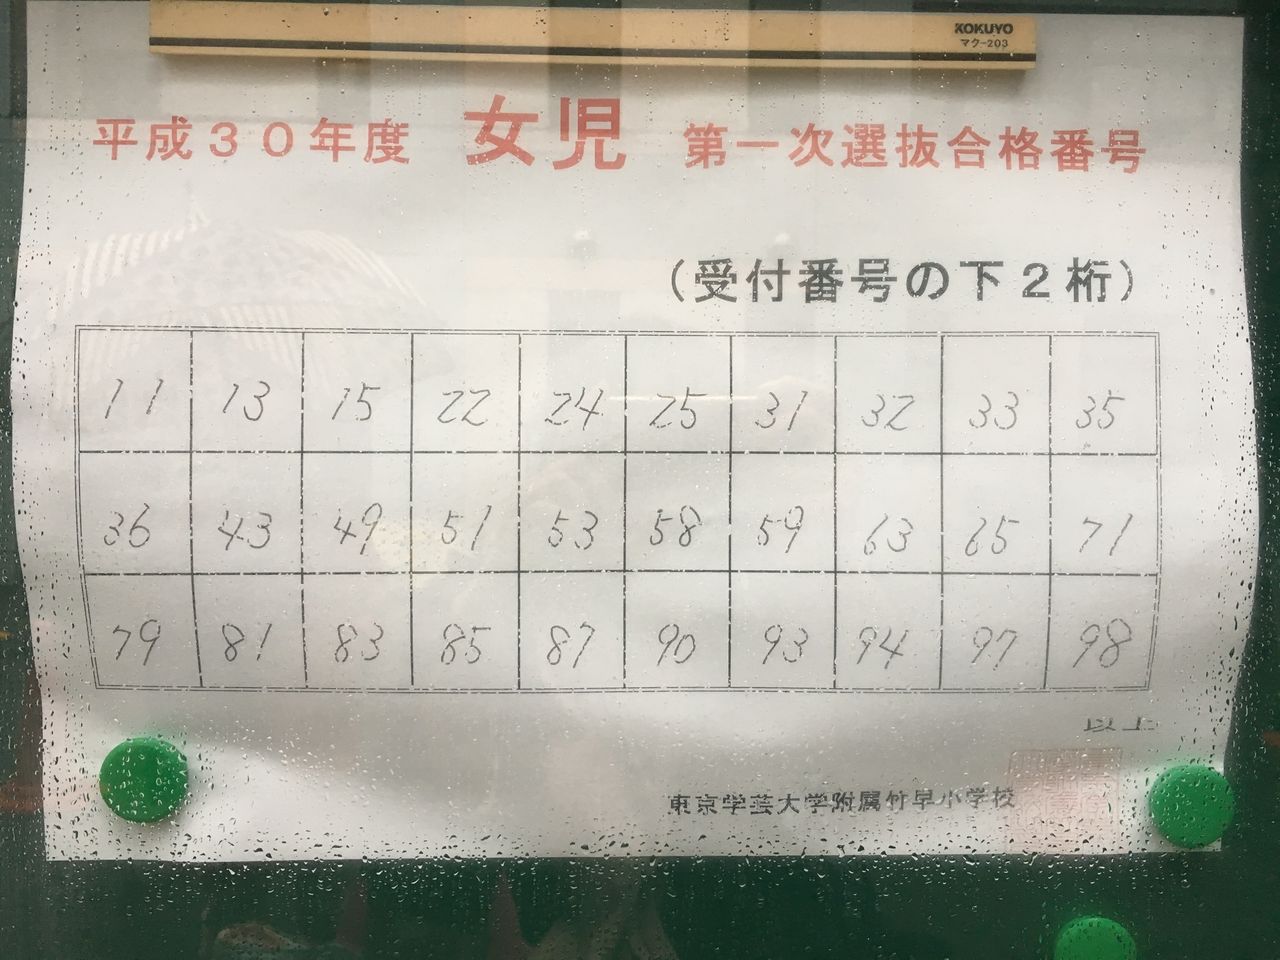 KOKUYO
マク-203
平成30年度 女児 第一次選抜合格番号
(受付番号の下2桁)
11 13 15 22 24 25 31 32 33 35
36 43 49 51 53 58 59 63 65 71
79 81 83 85 87 90 93 94 97 98
以上
東京学芸大学附属竹早小学校